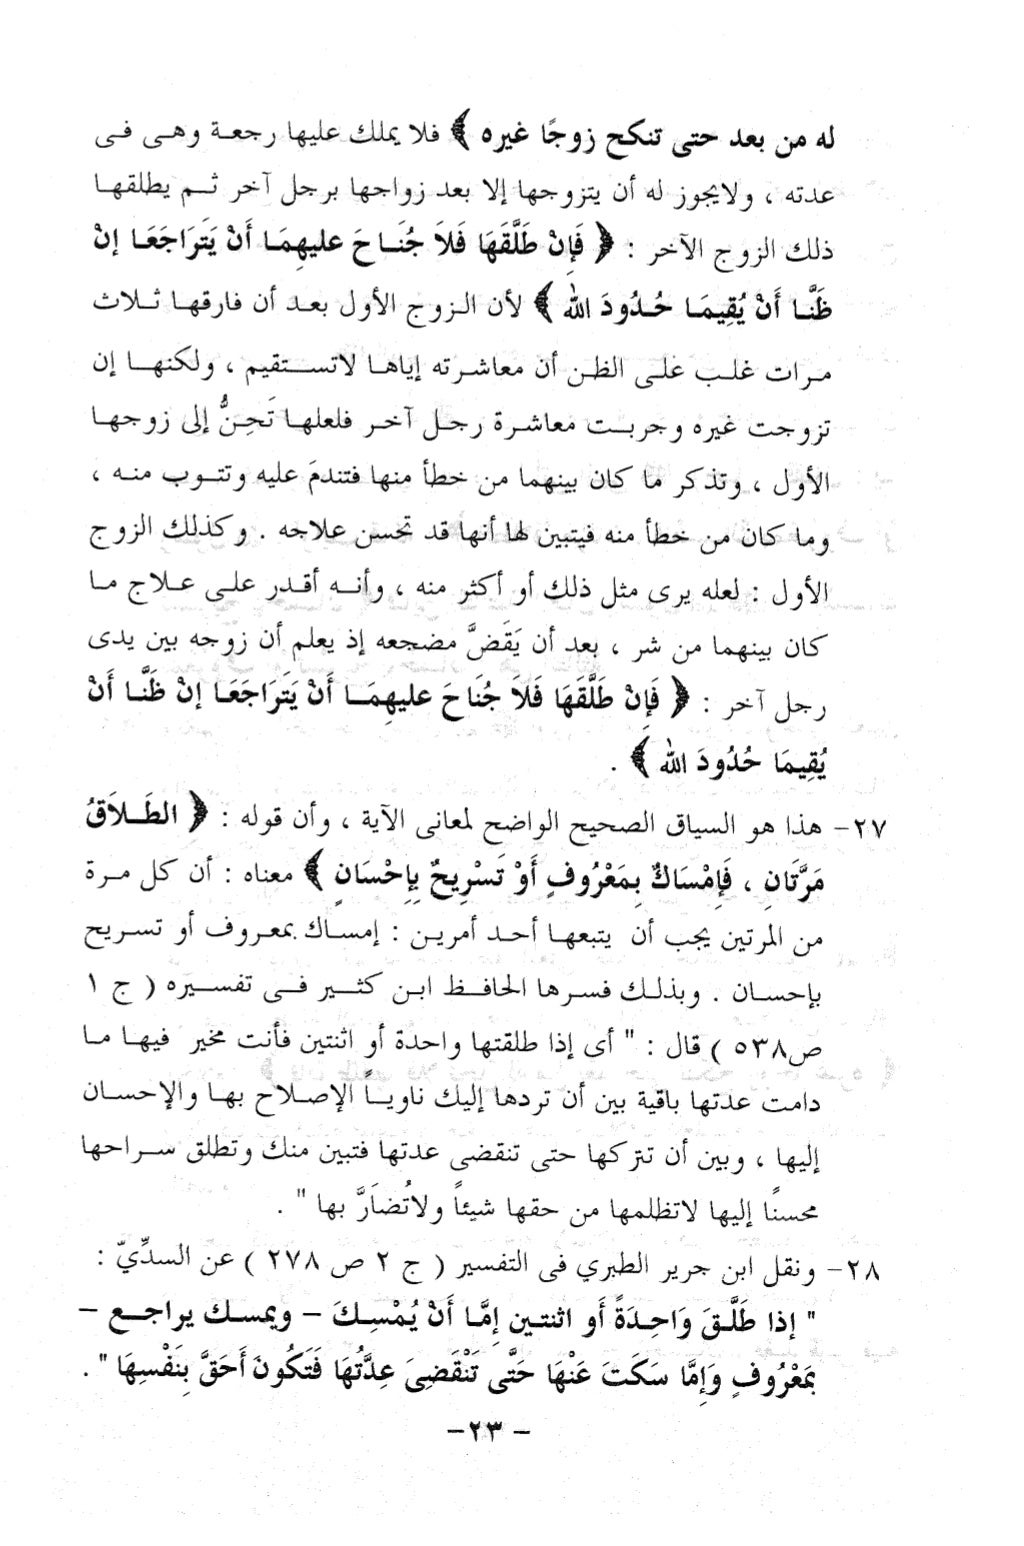 له من بعد حتى تنكح زوجًا غيره ﴾ فلا يملك عليها رجعة وهى فى
عدته ، ولايجوز له أن يتزوجها إلا بعد زواجها برجل آخر ثم يطلقها
ذلك الزوج الآخر : ﴿ فَإِنْ طَلَّقَهَا فَلاَ جُنَاحَ عليهِمَا أَنْ يَتَرَاجَعَا إنْ
ظَنَّا أَنْ يُقِيمَا حُدُودَ الله ﴾ لأن الزوج الأول بعد أن فارقها ثلاث
مرات غلب على الظن أن معاشرته إياها لاتستقيم ، ولكنها إن
تزوجت غيره وجربت معاشرة رجل آخر فلعلها تَحِنُّ إلى زوجها
الأول ، وتذكر ما كان بينهما من خطأ منها فتندمَ عليه وتتوب منه ،
وما كان من خطأ منه فيتبين لها أنها قد تحسن علاجه . وكذلك الزوج
الأول : لعله يرى مثل ذلك أو أكثر منه ، وأنه أقدر على علاج ما
كان بينهما من شر ، بعد أن يَقَضَّ مضجعه إذ يعلم أن زوجه بين يدى
رجل آخر : ﴿ فَإِنْ طَلَّقَهَا فَلاَ جُنَاحَ عليهِمَا أَنْ يَتَرَاجَعَا إنْ ظَنَّا أَنْ
يُقِيمَا حُدُودَ الله ﴾ .
٢٧- هذا هو السياق الصحيح الواضح لمعانى الآية ، وأن قوله : ﴿ الطَلاَقُ
مَرَّتَانِ ، فَإِمْسَاكٌ بِمَعْرُوفٍ أَوْ تَسْرِيحٌ بِإِحْسَانٍ ﴾ معناه : أن كل مرة
من المرتين يجب أن يتبعها أحد أمرين : إمساك بمعروف أو تسريح
بإحسان . وبذلك فسرها الحافظ ابن كثير فى تفسيره ( ج ١
ص٥٣٨ ) قال : " أى إذا طلقتها واحدة أو اثنتين فأنت مخير فيها ما
دامت عدتها باقية بين أن تردها إليك ناوياً الإصلاح بها والإحسان
إليها ، وبين أن تتركها حتى تنقضى عدتها فتبين منك وتطلق سراحها
محسنًا إليها لاتظلمها من حقها شيئاً ولاتُضَارَّ بها " .
٢٨- ونقل ابن جرير الطبري فى التفسير ( ج ٢ ص ٢٧٨ ) عن السدِّيّ :
" إذا طَلَّقَ وَاحِدَةً أَو اثنتين إِمَّا أَنْ يُمْسِكَ – ويمسك يراجع –
بَمَعْرُوفٍ وَإِمَّا سَكَتَ عَنْهَا حَتَّى تَنْقَضِىَ عِدَّتُهَا فَتَكُونَ أَحَقَّ بِنَفْسِهَا " .
- ٢٣-